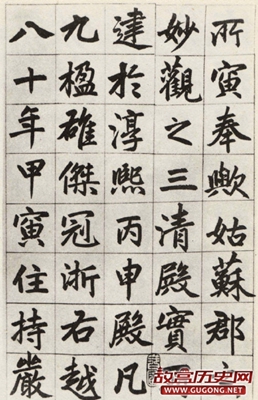 所寅奉歟姑蘇郡
妙觀之三清殿實
建於淳熙丙申殿凡
九楹雄傑冠浙右越
八十年甲寅住持嚴
故宫历史网
www.gugong.net